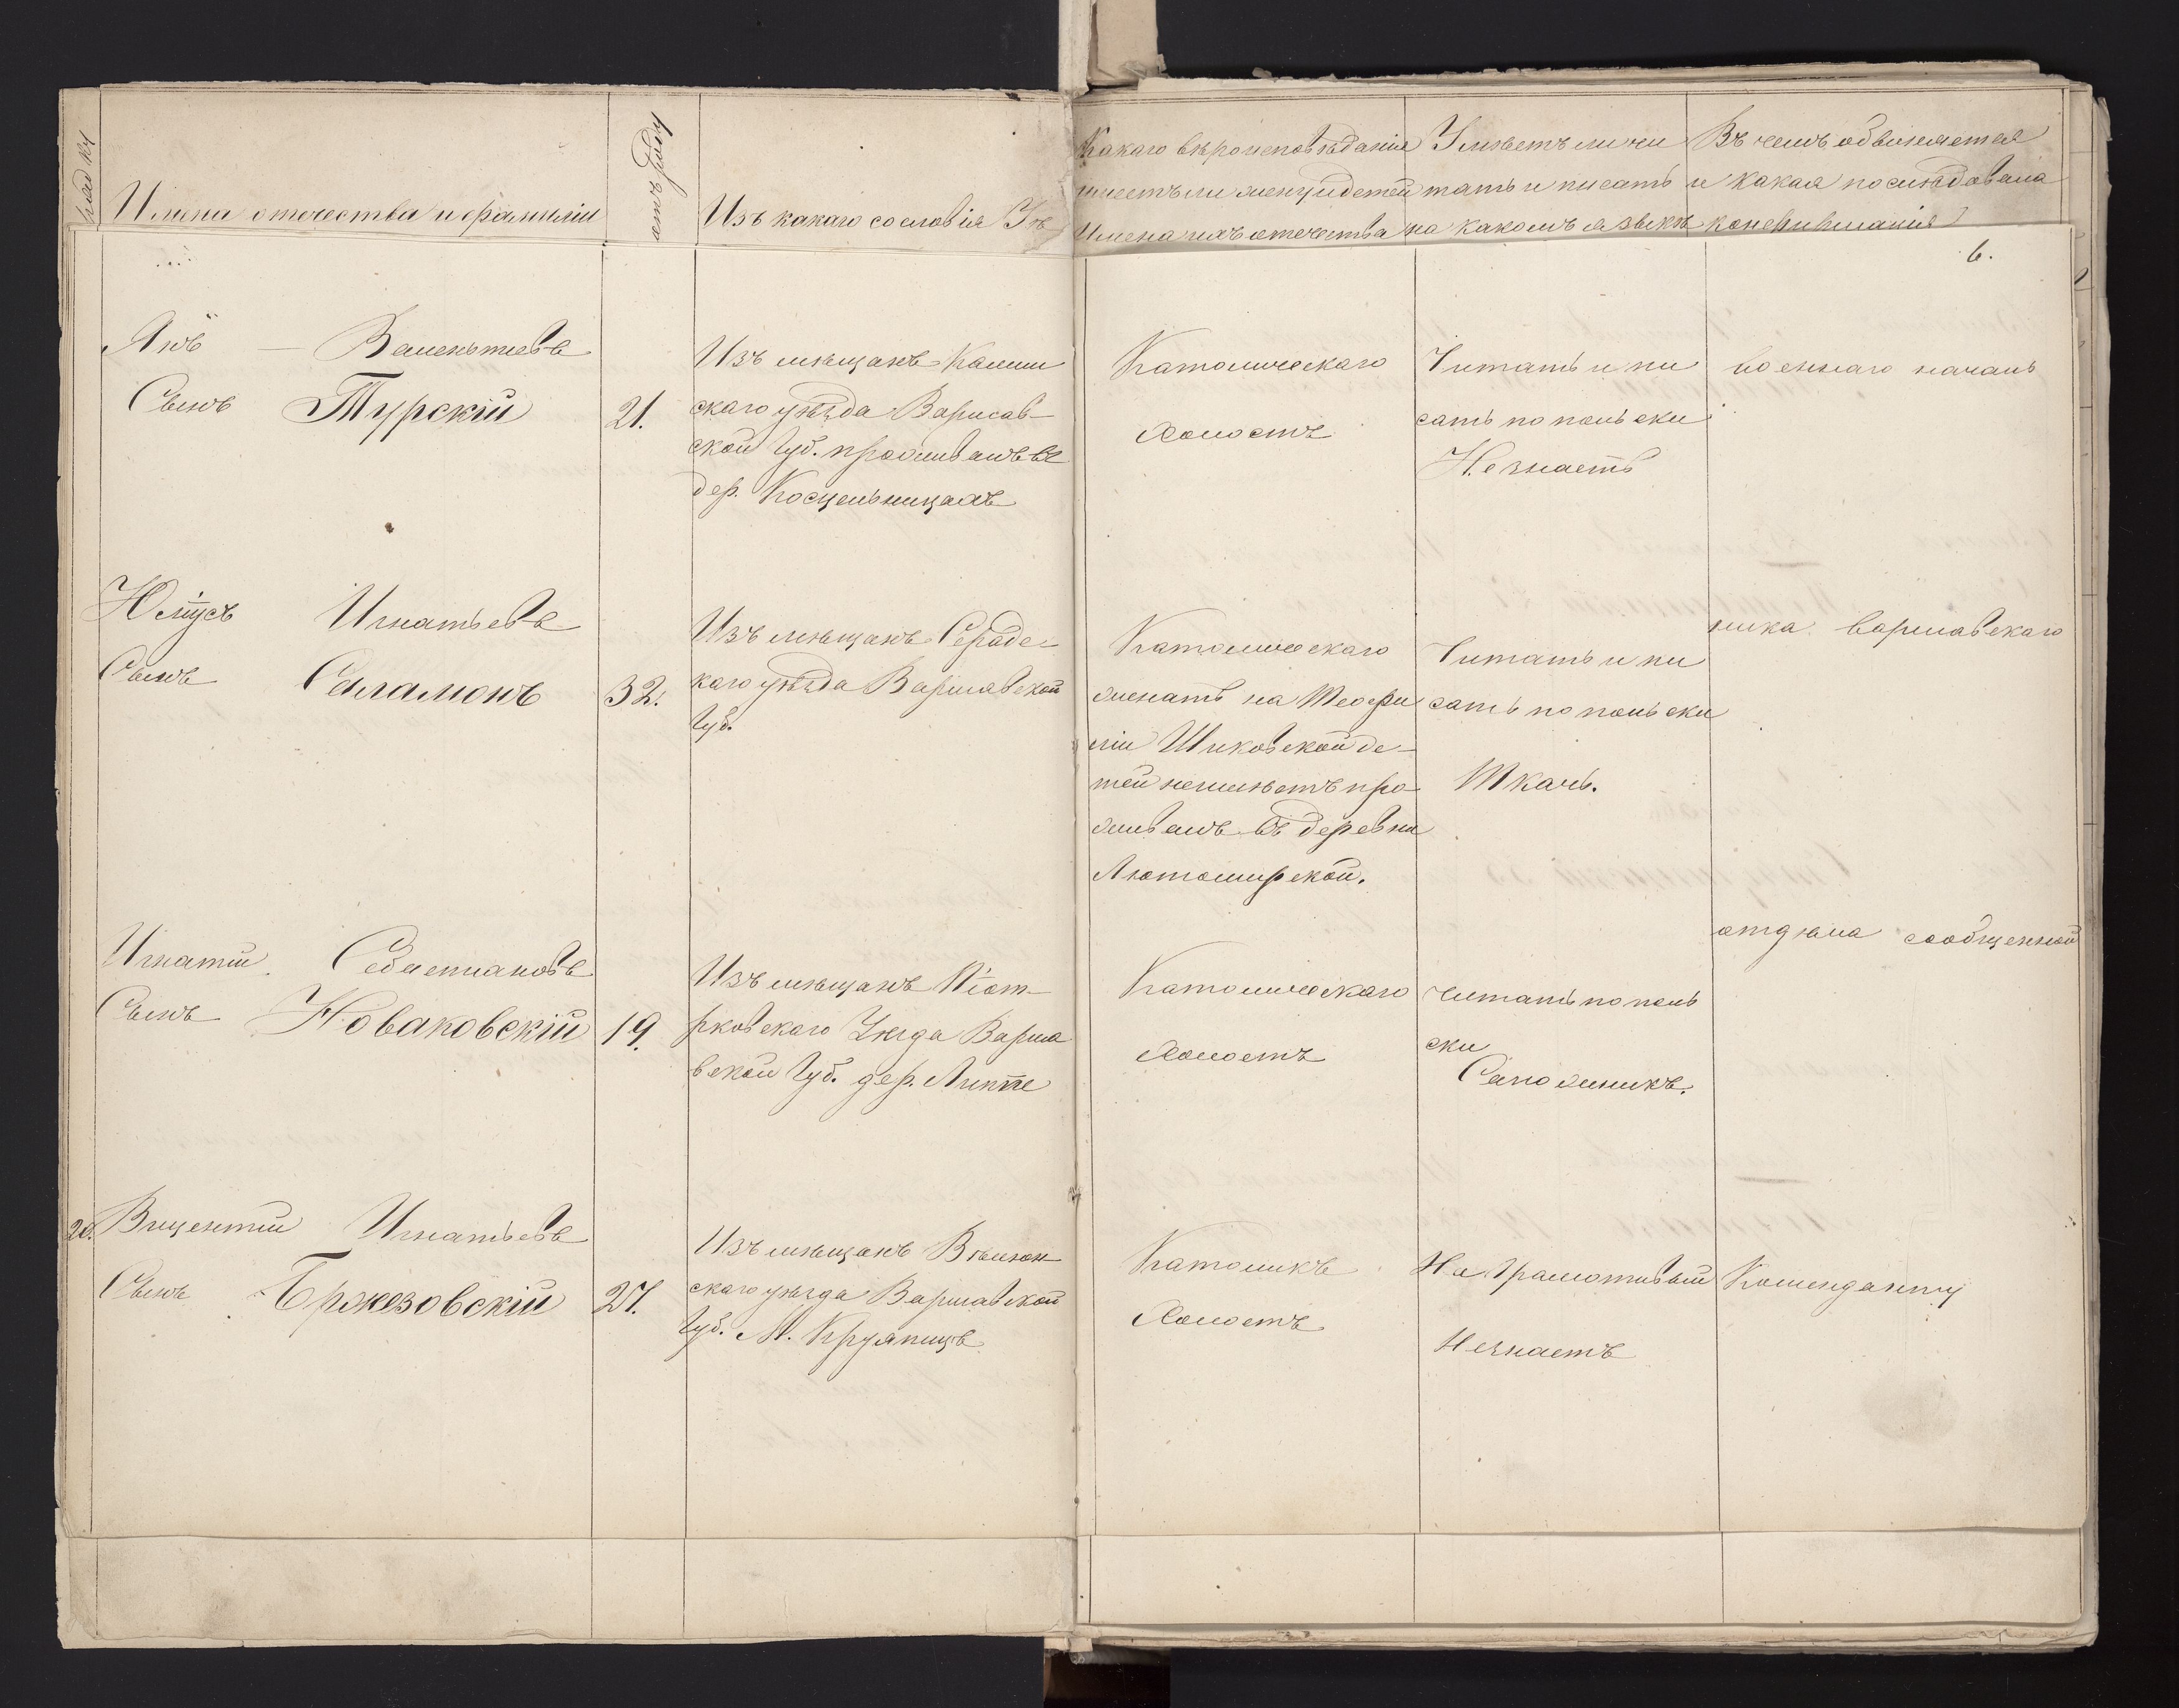 Имена отечества и фамилии
летъ роду
Изъ какаго сословія
Какаго вѣроисповѣданія
имеетъ ли жену и детей
Имена ихъ отечества
Умѣетъ ли чи
тать и писать
на какомъ языкѣ
Въ чемъ обвиняется
и какая последовала
конфирмація
6.
Янъ Валентьевъ
Сынъ Турскій
21.
Изъ мѣщанъ Калиш
скаго уѣзда Варшав-
ской Губ. проживалъ въ
дер. Косцельницахъ
Католическаго
Холостъ
Читать и пи
сать по польски
Незнаетъ
военнаго началь
Юліусъ Игнатьевъ
Сынъ Саламонъ
32.
Изъ мѣщанъ Серадс-
каго уѣзда Варшавской
Губ.
Католическаго
женатъ на Теофи
ліи Шиковской де-
тей неимѣетъ про-
живалъ въ деревни
Лютомирской.
Читать и пи
сать по польски
Ткачь.
ника варшавскаго
Игнатій Себастіановъ
Сынъ Новаковскій
19.
Изъ мѣщанъ Піот-
рковскаго Уѣзда Варша
вской Губ. дер. Липпе
Католическаго
Холостъ
читать по поль
ски
Сапожникъ.
отдѣла сообщенной
20. Вицентій Игнатьевъ
Сынъ Бржезовскій
27.
Изъ мѣщанъ Вѣлюн-
скаго уѣзда Варшавской
Губ. М.
Католикъ
Холостъ
Не Грамотный
Незнаетъ
Коменданту